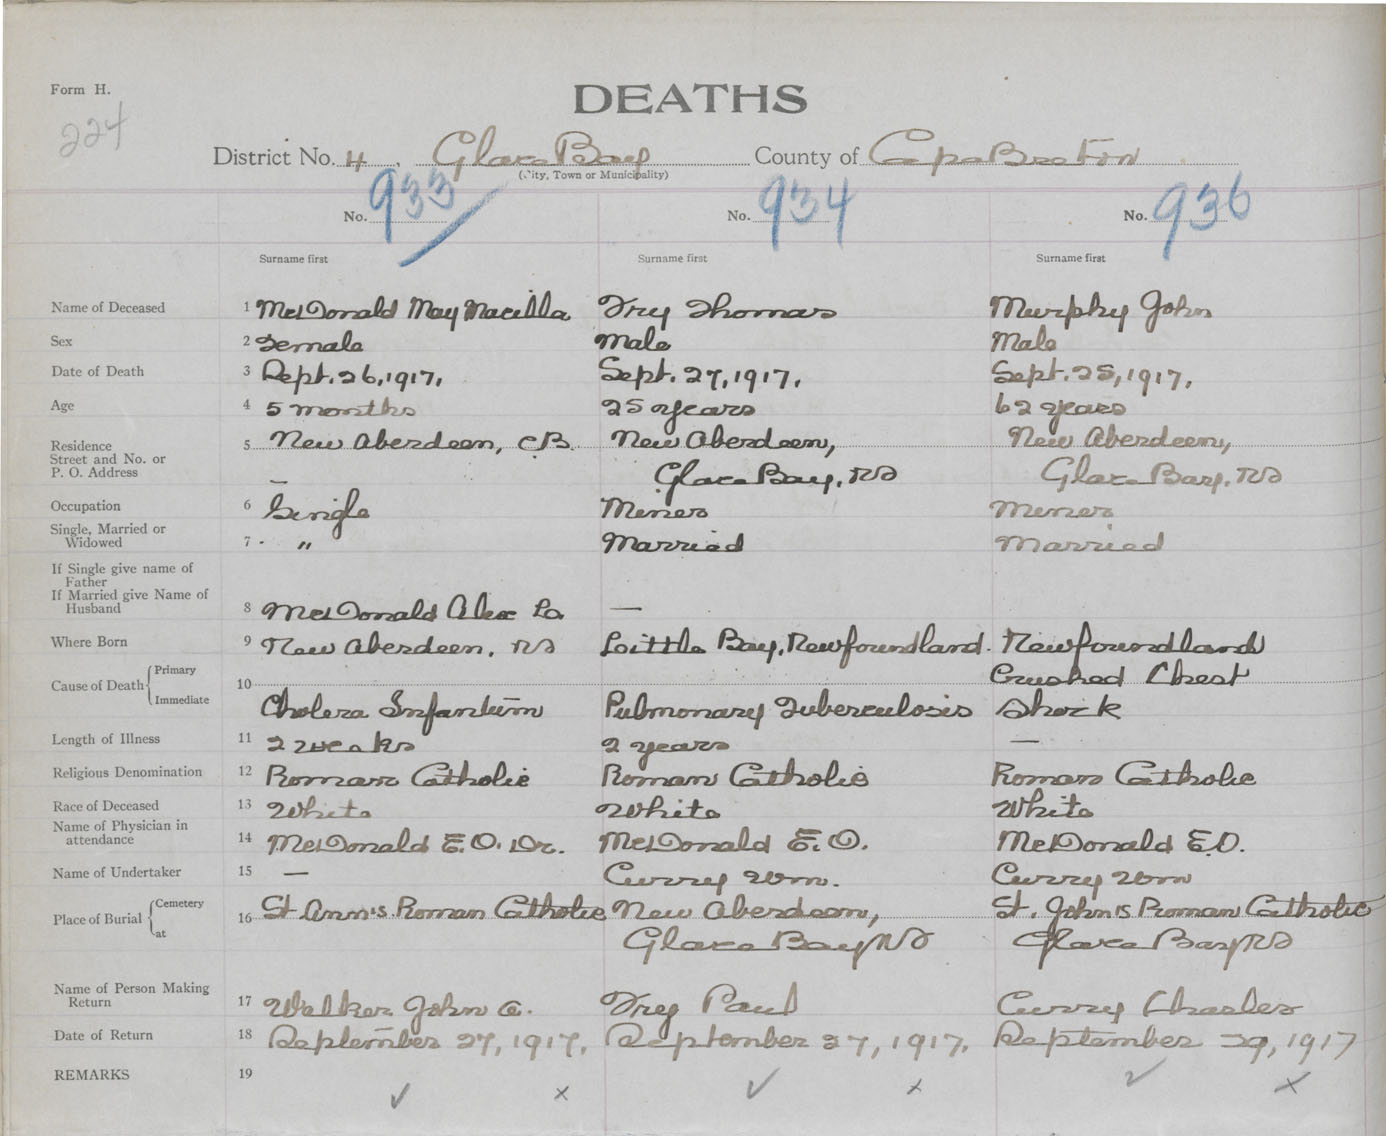 Form H.
DEATHS
224
District No. 4, Glace Bay County of Cape Breton
(City, Town or Municipality)
No. 933 No. 934 No. 936
Surname first Surname first Surname first
Name of Deceased 1 McDonald May Macilla Fry Thomas Murphy John
Sex 2 Female Male Male
Date of Death 3 Sept. 26, 1917. Sept. 27, 1917. Sept. 25, 1917.
Age 4 5 months 25 years 62 years
Residence 5 New Aberdeen, CB. New Aberdeen, New Aberdeen,
Street and No. or
P. O. Address — Glace Bay, NS Glace Bay, NS
Occupation 6 Single Miner Miner
Single, Married or
Widowed 7 " Married Married
If Single give name of
Father
If Married give Name of
Husband 8 McDonald Alex — 
Where Born 9 New Aberdeen, NS Little Bay, Newfoundland. Newfoundland
Cause of Death Primary 10 Crushed Chest
Immediate Cholera Infantum Pulmonary Tuberculosis Shock
Length of Illness 11 2 weeks 2 years —
Religious Denomination 12 Roman Catholic Roman Catholic Roman Catholic
Race of Deceased 13 White White White
Name of Physician in
attendance 14 McDonald E.O. Dr. McDonald E.O. McDonald E.O.
Name of Undertaker 15 — Curry Wm. Curry Wm
Place of Burial Cemetery 16 St Ann's Roman Catholic New Aberdeen, St. John's Roman Catholic
at Glace Bay NS Glace Bay NS
Name of Person Making
Return 17 Walker John C. Frey Paul Curry Charles
Date of Return 18 September 27, 1917. September 27, 1917. September 29, 1917
REMARKS 19
✓ x ✓ x ✓ x